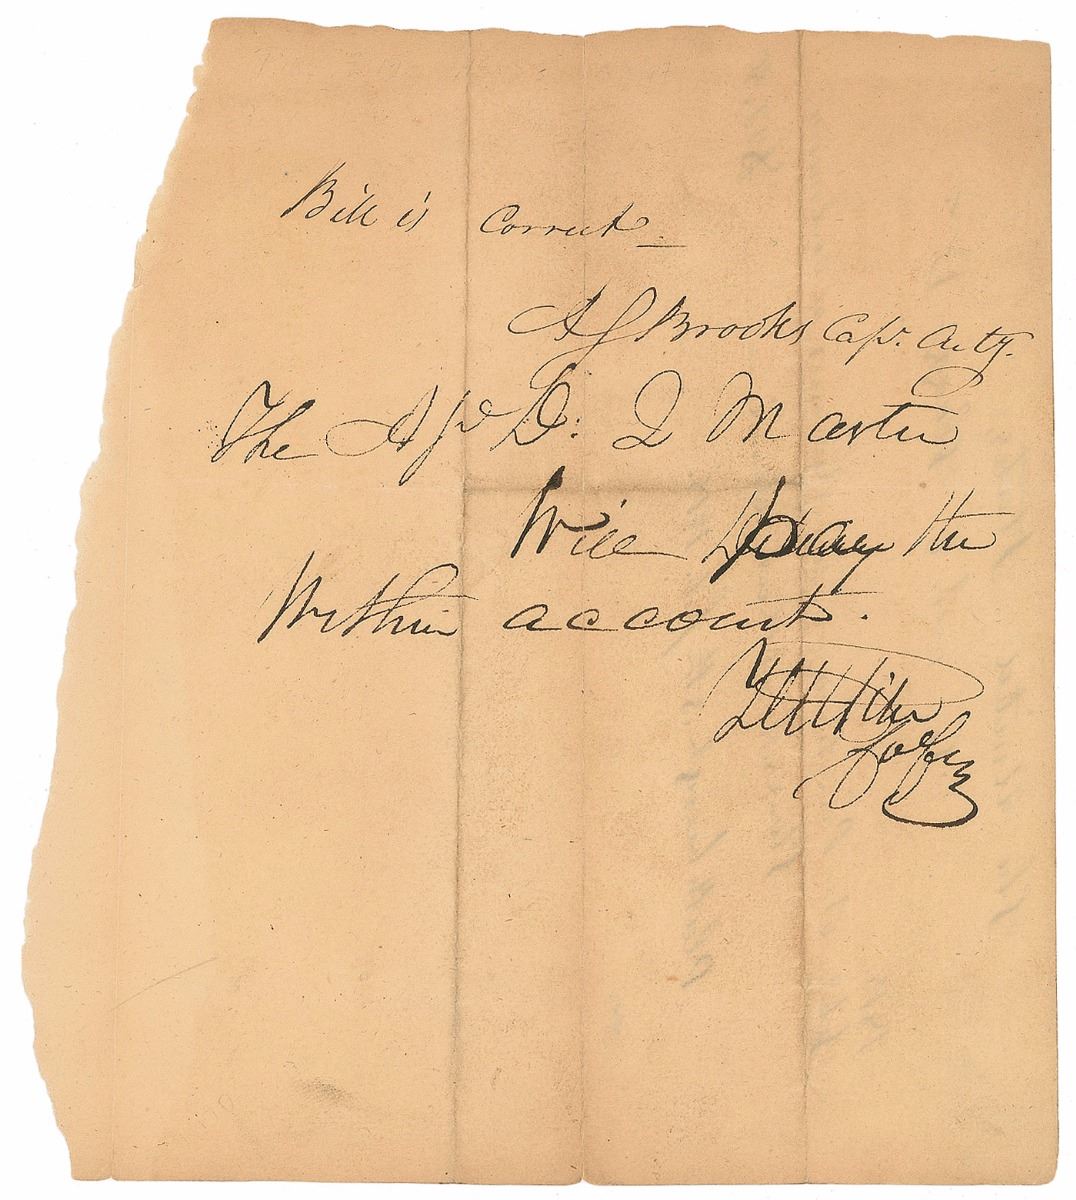 Bill is Correct
A J Brooks Cap. Arty.
The A D. Q Master
Will pay the
Within account.
Z M Pike